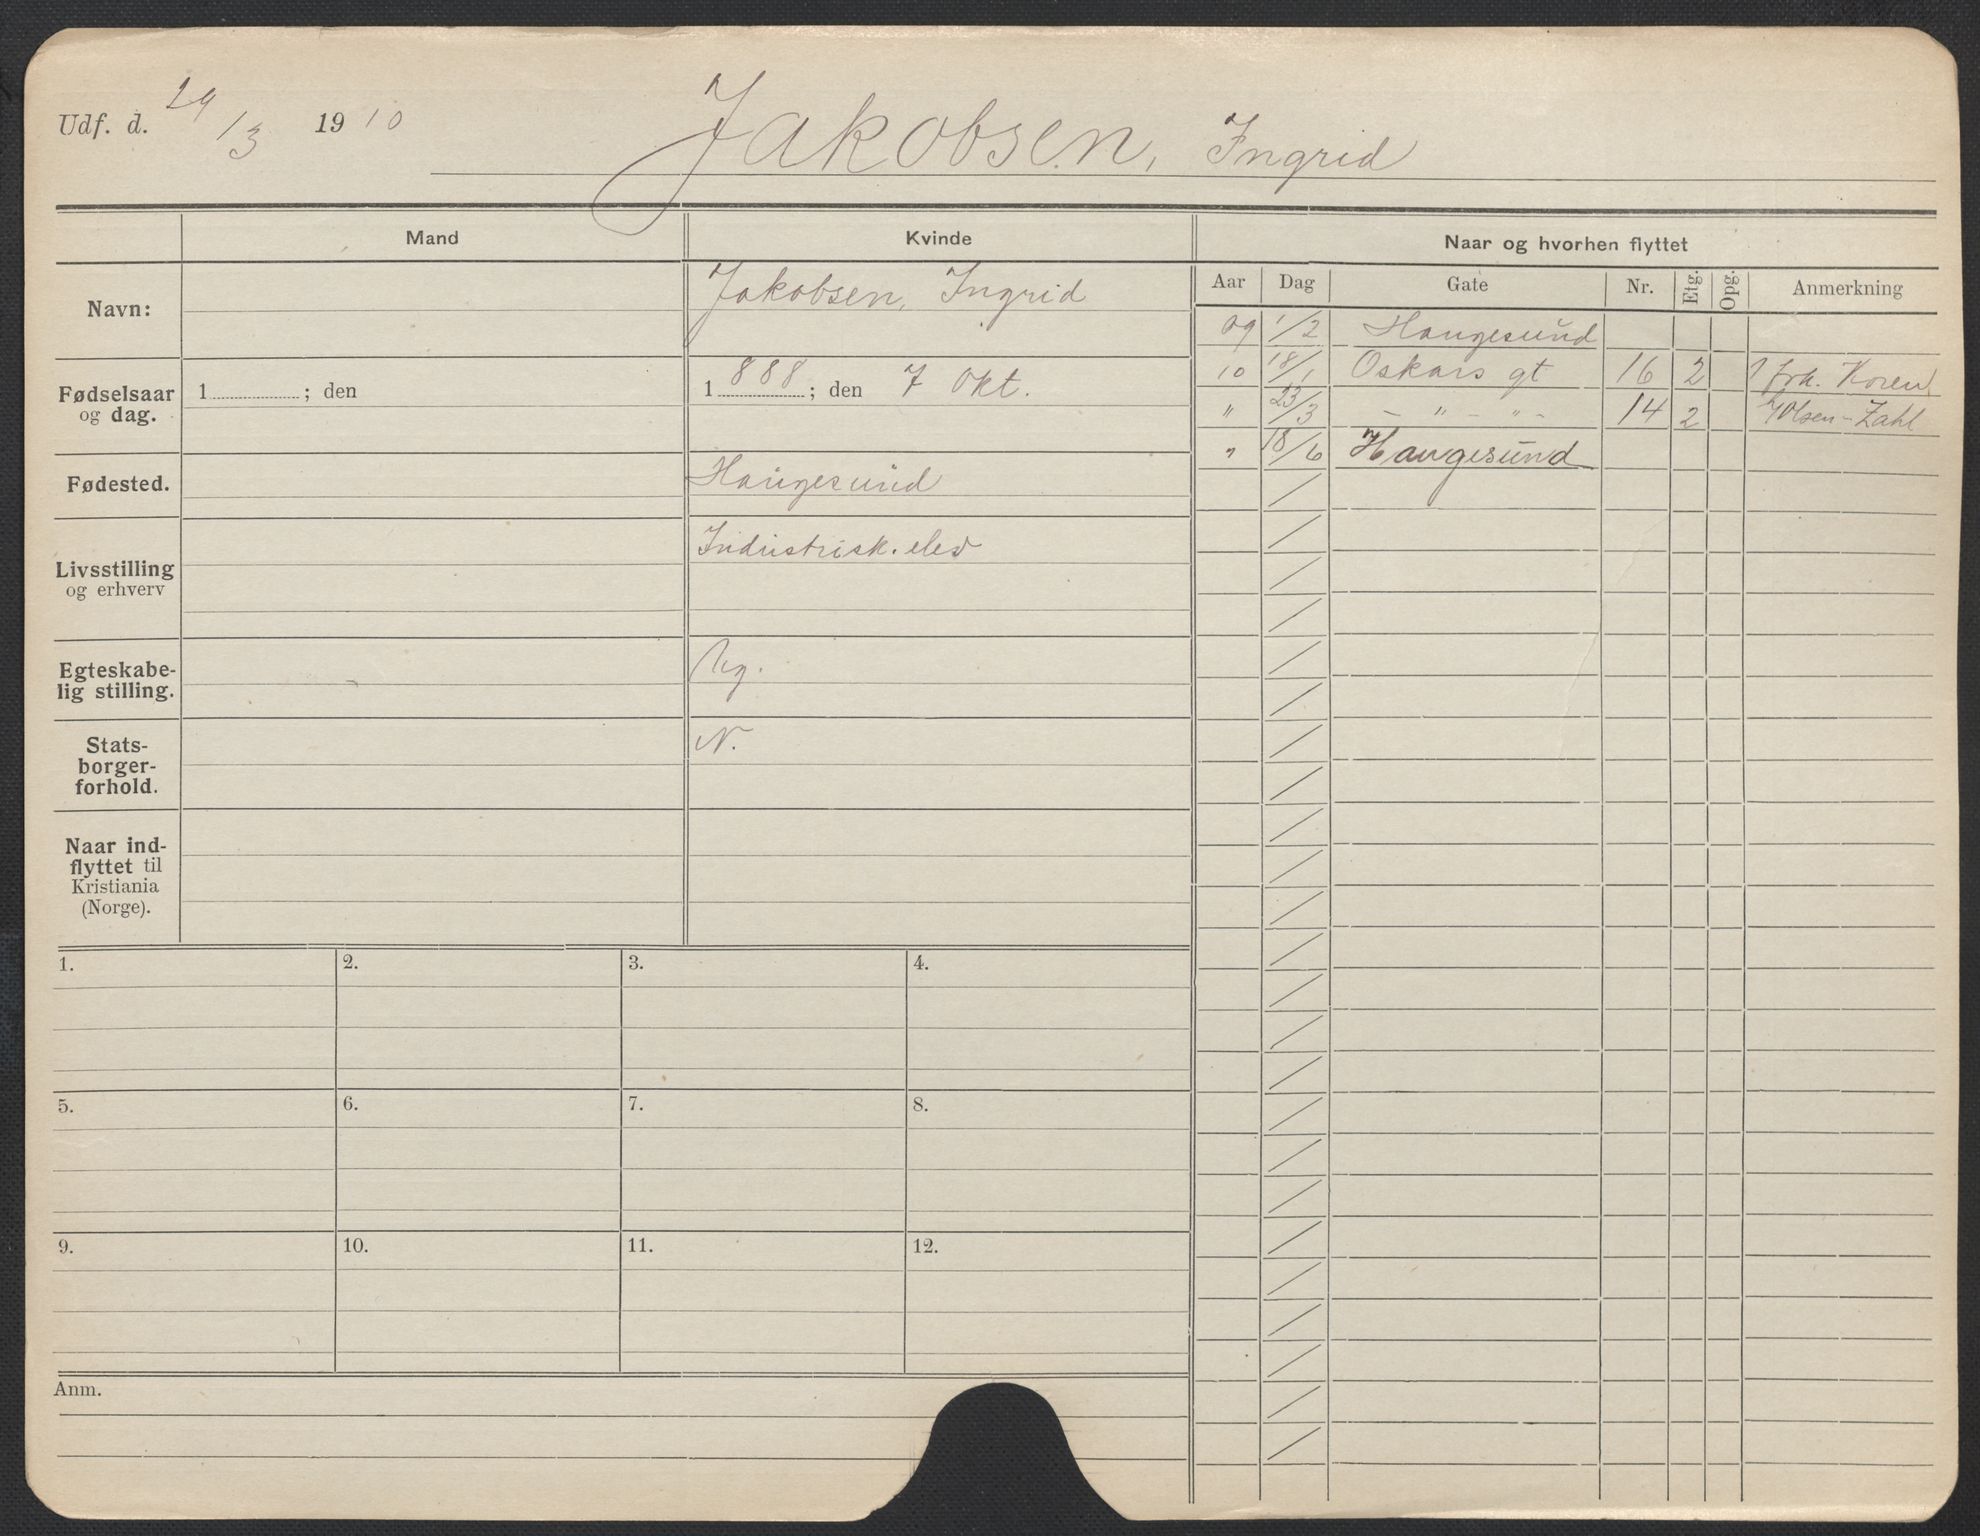 Udf. d. 29/3 1910 Jakobsen, Ingrid
Mand
Kvinde
Naar og hvorhen flyttet
Aar Dag Gate Nr. Etg. Opg. Anmerkning
Navn:
Jakobsen, Ingrid
Fødselsaar
og dag.
1 ; den
1888 ; den 7 Okt.
Fødested.
Haugesund
Livsstilling
og erhverv
Industrisk. elev
Egteskabe-
lig stilling.
Ug.
Stats-
borger-
forhold.
N.
Naar ind-
flyttet til
Kristiania
(Norge).
09 1/2 Haugesund
10 18/1 Oskars gt 16 2 frk. Koren
" 23/3 – " – " – 14 2 Olsen-Zahl
" 18/6 Haugesund
1. 2. 3. 4.
5. 6. 7. 8.
9. 10. 11. 12.
Anm.